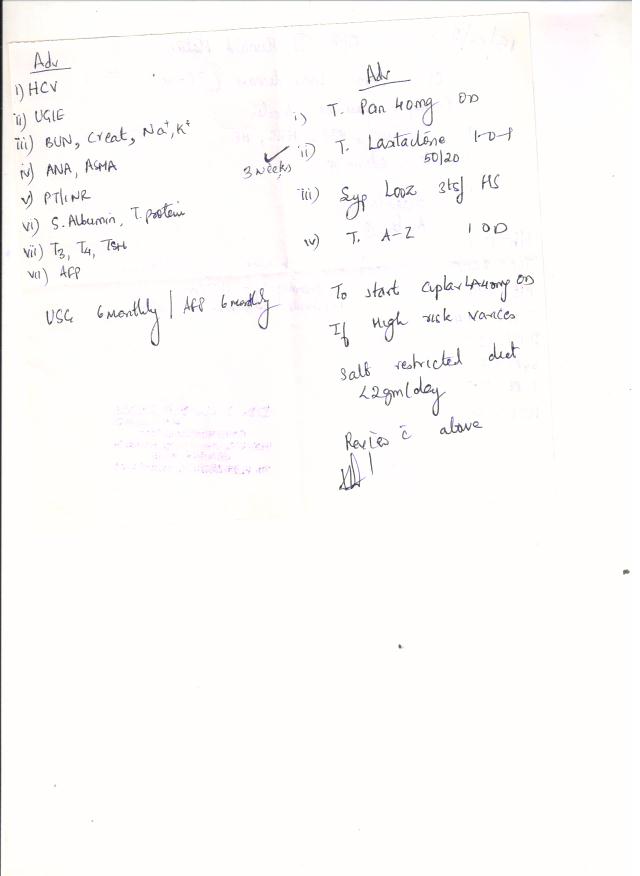 Adv
i) HCV
ii) UGIE
iii) BUN, Creat, Na+, K+
iv) ANA, ASMA
v) PT/INR
vi) S. Albumin, T. protein
vii) T3, T4, TSH
vii) AFP
USG 6 monthly / AFP 6 monthly
Adv
i) T. Pan 40mg OD
ii) T. Lasilactone 1-0-1
50/20
3 weeks
iii) Syp Looz 3tsf HS
iv) T. A-Z 1 OD
To start Ciplar LA 40mg OD
If High risk varices
Salt restricted diet
<2gm/day
Review c̄ above